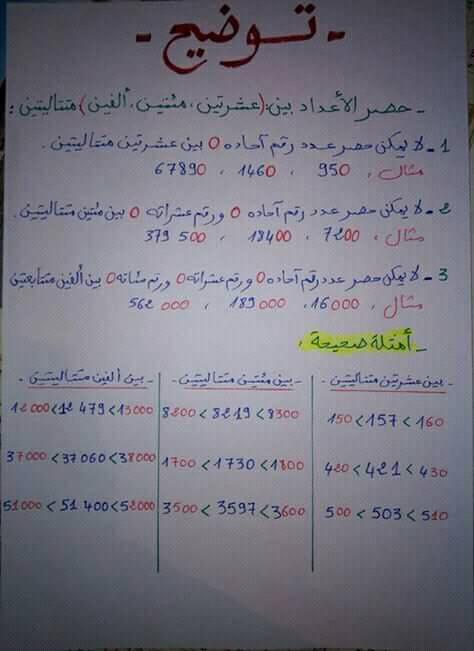 - تـوضيح -
- حصر الأعداد بين: (عشرتين، مئتين، ألفين) متتاليتين:
1 - لا يمكن حصر عدد رقم آحاده 0 بين عشرتين متتاليتين.
مثال، 950 ، 1460 ، 67890
2 - لا يمكن حصر عدد رقم آحاده 0 ورقم عشراته 0 بين مئتين متتاليتين.
مثال، 7200 ، 18400 ، 379 500
3 - لا يمكن حصر عدد رقم آحاده 0 ورقم عشراته 0 ورقم مئاته 0 بين ألفين متتابعتين
مثال، 16000 ، 189 000 ، 562 000
- أمثلة صحيحة:
- بين عشرتين متتاليتين -
150 < 157 < 160
420 < 421 < 430
500 < 503 < 510
- بين مئتين متتاليتين -
8200 < 8219 < 8300
1700 < 1730 < 1800
3500 < 3597 < 3600
- بين ألفين متتاليتين -
12000 < 12 479 < 13000
37000 < 37 060 < 38000
51000 < 51 400 < 52000